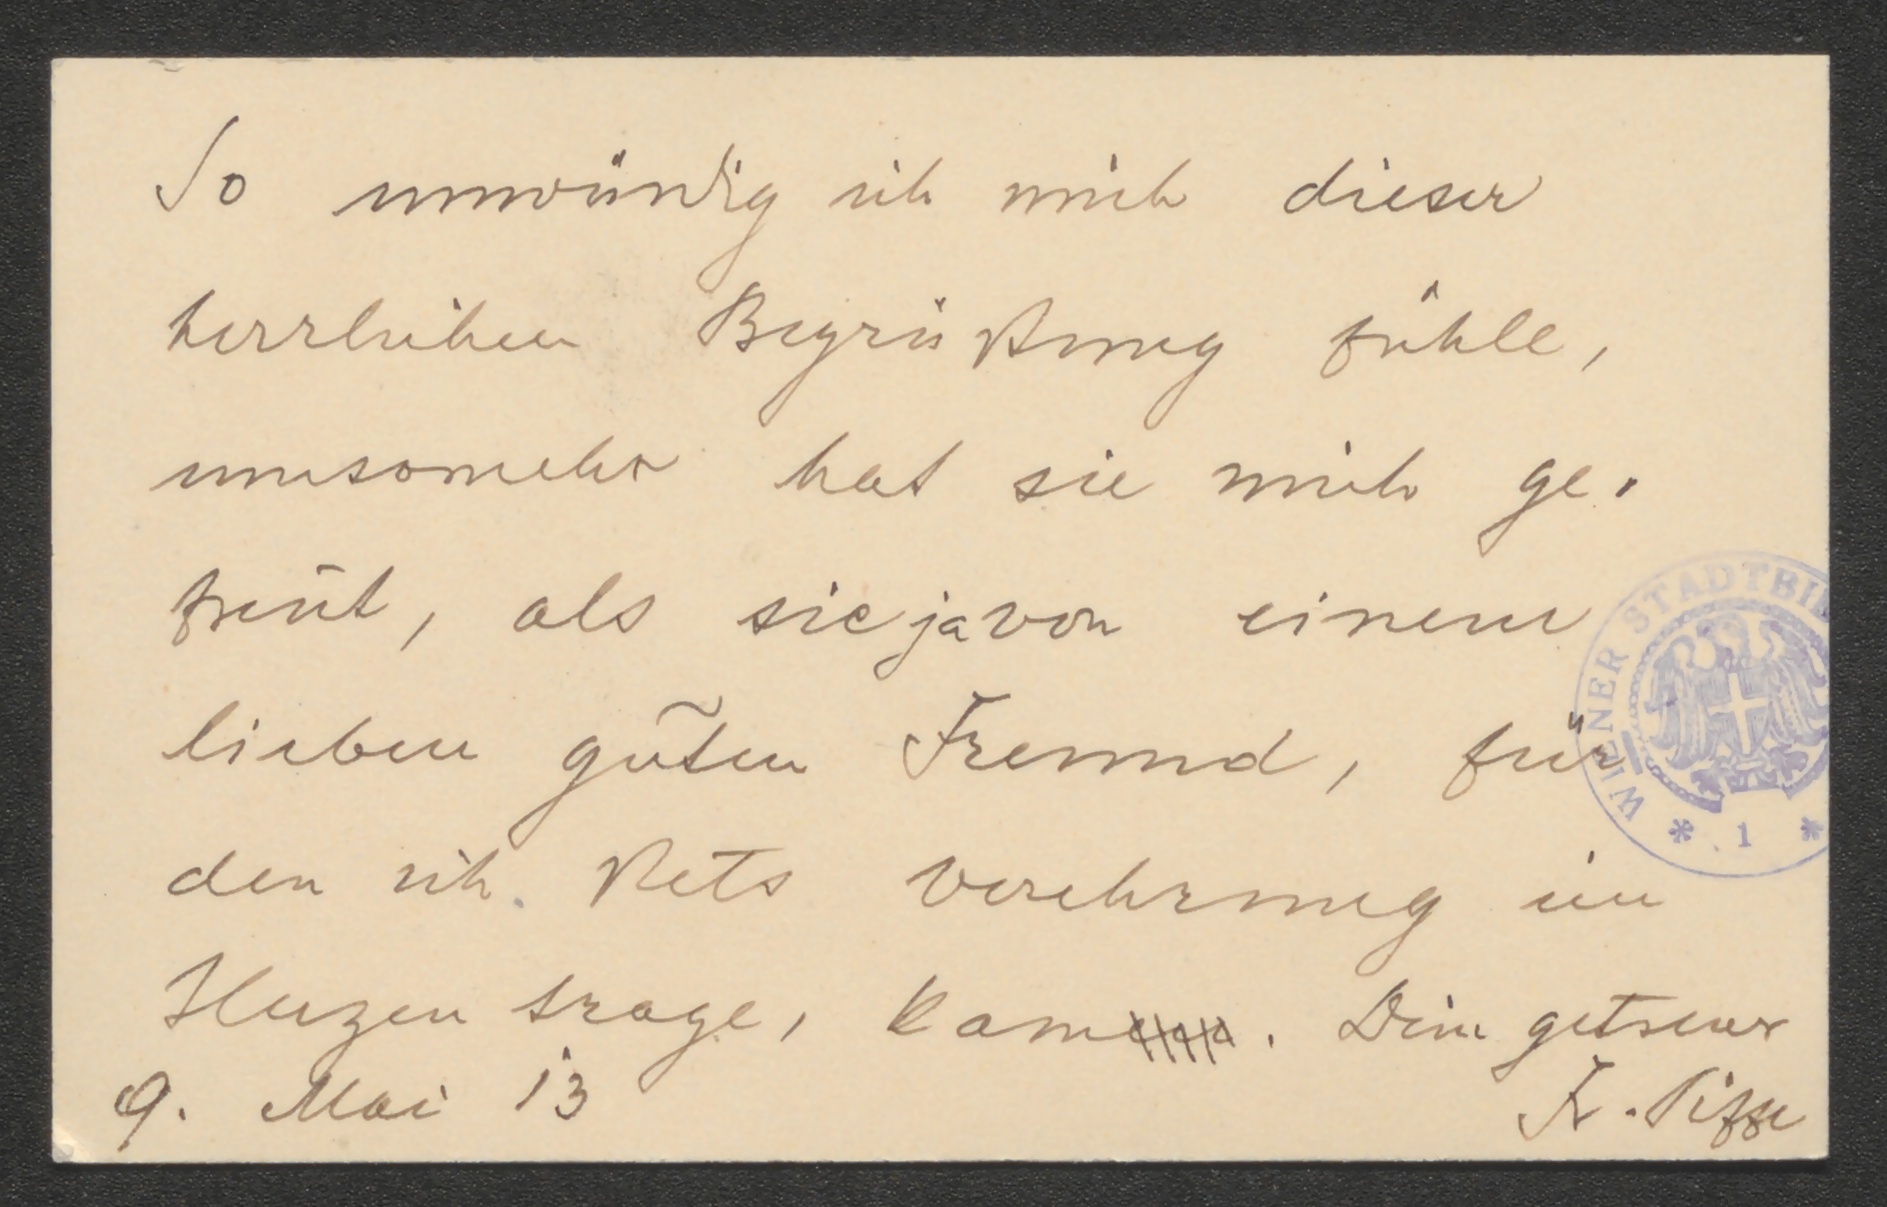 So unwürdig ich mich dieser
herrlichen Begrüßung fühle,
umsomehr hat sie mich ge-
freut, als sie ja von einem
lieben guten Freund, für
den ich stets Verehrung im
Herzen trage, kam. Dein getreuer
9. Mai 13
Fr.
WIENER STADTBI
* 1 *